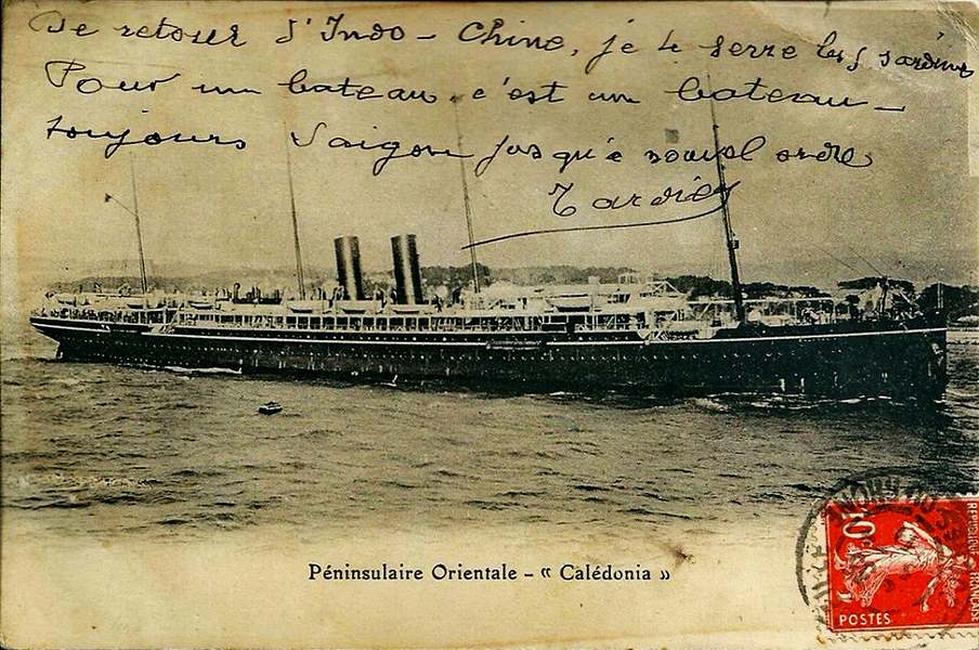 De retour d'Indo-Chine, je te serre les sardines
Pour un bateau, c'est un bateau —
toujours Saigon jusqu'à nouvel ordre
Tardieu
Péninsulaire Orientale - « Calédonia »
10
POSTES